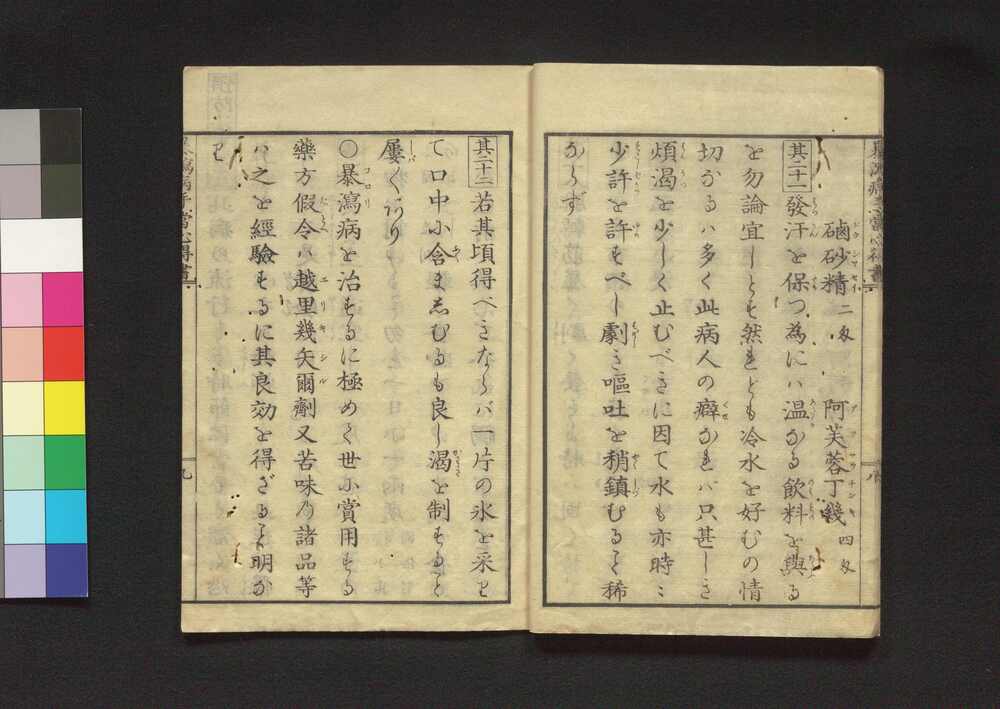 磠砂精 二匁 阿芙蓉丁幾 四匁
其二十一 發汗を保つ為にハ温かる飲料を與る
を勿論宜しとも然れども冷水を好むの情
切かるハ多く此病人の癖かれバ只甚しき
煩渇を少しく止むべきに因て水も亦時々
少許を許すべし劇き嘔吐を稍鎮むるヿ稀
からず
其二十二 若其頃得べきならバ一片の氷を采り
て口中に含ましむるも良し渇を制するヿ
屡〻あり
〇暴瀉病を治するに極めて世に賞用する
藥方假令ハ越里幾矢爾劑又苦味乃諸品等
ハ之を經驗するに其良効を得ざるヿ明か
り
暴瀉病手當心得書
八
九